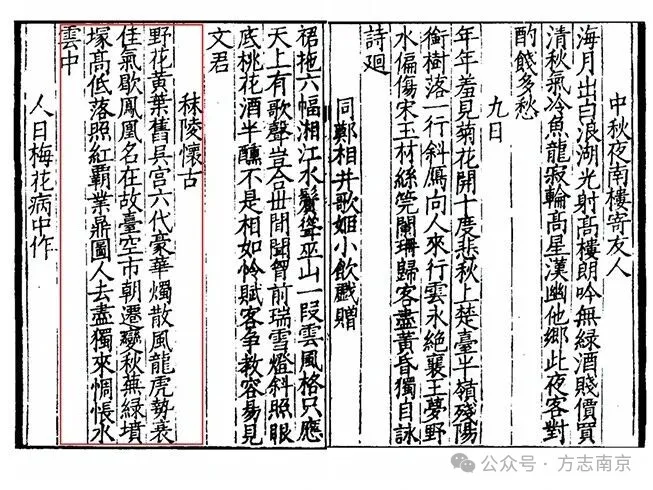 中秋夜南樓寄友人
海月出白浪湖光射高樓朗吟無綠酒賤價買
清秋氣冷魚龍寂輪高星漢幽他鄉此夜客對
酌餞多愁
九日
年年羞見菊花開十度悲秋上楚臺半嶺殘陽
銜樹落一行斜鴈向人來行雲永絕襄王夢野
水偏傷宋玉材絲筦闌珊歸客盡黃昏獨自詠
詩廻
同鄭相并歌姬小飲戲贈
裙拖六幅湘江水鬢聳巫山一段雲風格只應
天上有歌聲豈合世間聞胷前瑞雪燈斜照眼
底桃花酒半醺不是相如怜賦客争教容易見
文君
秣陵懷古
野花黃葉舊吳宮六代豪華燭散風龍虎勢衰
佳氣歇鳳凰名在故臺空市朝遷變秋蕪綠墳
塚高低落照紅霸業鼎圖人去盡獨來惆悵水
雲中
人日梅花病中作
公众号 · 方志南京